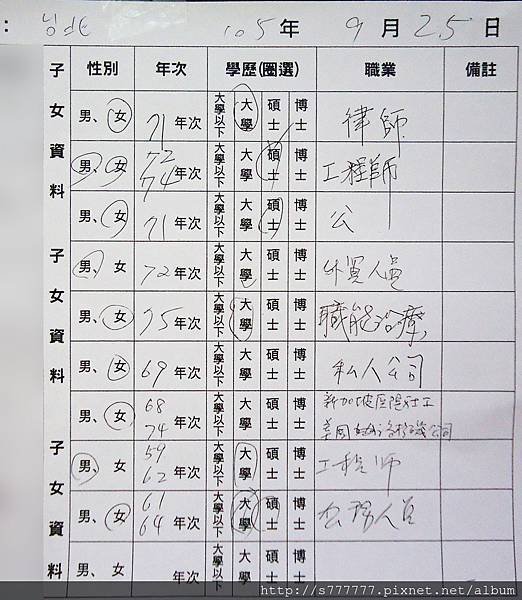 : 105年 9月25日
子女資料 子女資料 子女資料
性別 年次 學歷(圈選) 職業 備註
男、女 71年次 大學以下 大學 碩士 博士 律師
男、女 72 74年次 大學以下 大學 碩士 博士 工程師
男、女 71年次 大學以下 大學 碩士 博士 公
男、女 72年次 大學以下 大學 碩士 博士 外貿人員
男、女 75年次 大學以下 大學 碩士 博士 職能治療
男、女 69年次 大學以下 大學 碩士 博士 私人公司
男、女 68 74年次 大學以下 大學 碩士 博士 新加坡
美國 公司
男、女 59 62年次 大學以下 大學 碩士 博士 工程师
男、女 61 64年次 大學以下 大學 碩士 博士 公務人员
男、女 年次 大學以下 大學 碩士 博士
http://s777777.pixnet.net/album